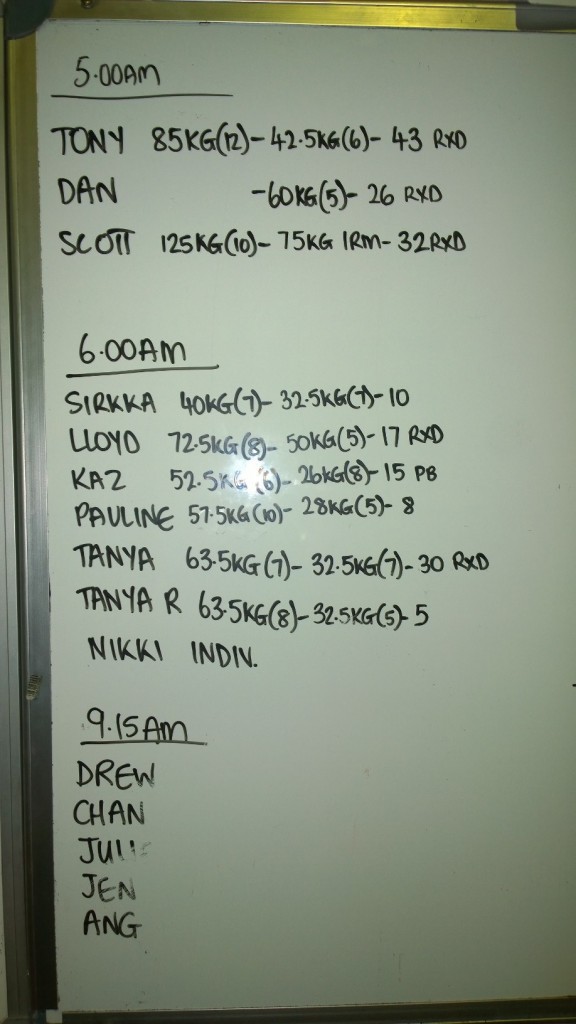 5.00AM
TONY 85KG(12)- 42.5KG(6)- 43 RXD
DAN -60KG(5)- 26 RXD
SCOTT 125KG(10)- 75KG 1RM- 32RXD
6.00AM
SIRKKA 40KG(7)- 32.5KG(7)- 10
LLOYD 72.5KG(8)- 50KG(5)- 17 RXD
KAZ 52.5KG(6)- 26KG(8)- 15 PB
PAULINE 57.5KG(10)- 28KG(5)- 8
TANYA 63.5KG(7)- 32.5KG(7)- 30 RXD
TANYA R 63.5KG(8)- 32.5KG(5)- 5
NIKKI INDIV.
9.15AM
DREW
CHAN
JULIE
JEN
ANG